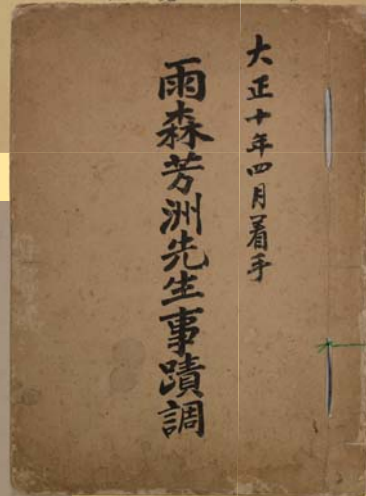 大正十年四月着手
雨森芳洲先生事蹟調